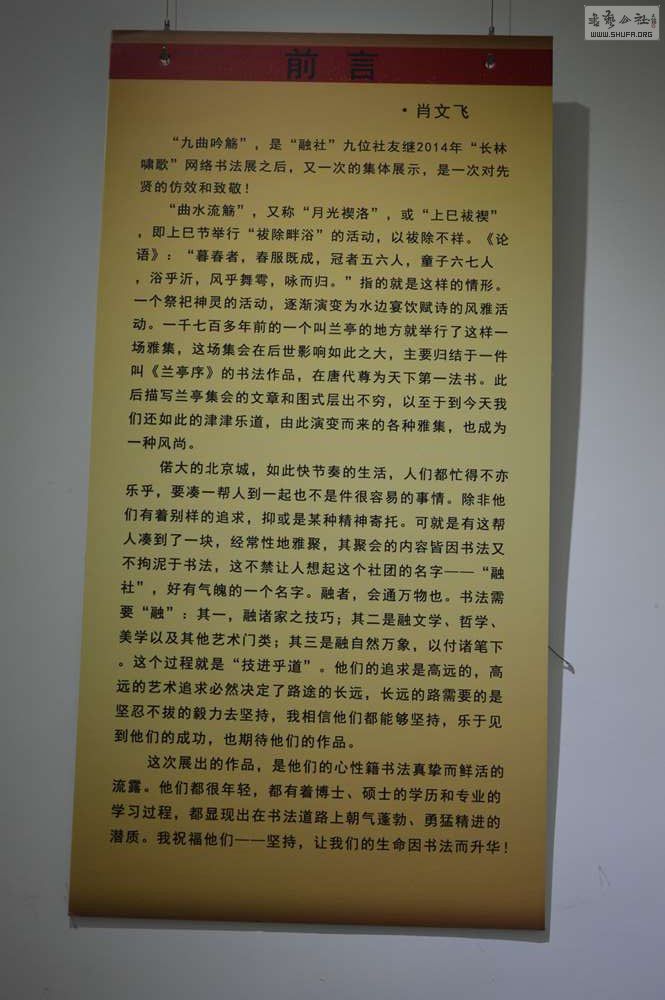 WWW.SHUFA.ORG
前言
·肖文飞
“九曲吟觞”，是“融社”九位社友继2014年“长林
啸歌”网络书法展之后，又一次的集体展示，是一次对先
贤的仿效和致敬！
“曲水流觞”，又称“月光禊洛”，或“上巳祓禊”
，即上巳节举行“祓除畔浴”的活动，以祓除不祥。《论
语》：“暮春者，春服既成，冠者五六人，童子六七人
，浴乎沂，风乎舞雩，咏而归。”指的就是这样的情形。
一个祭祀神灵的活动，逐渐演变为水边宴饮赋诗的风雅活
动。一千七百多年前的一个叫兰亭的地方就举行了这样一
场雅集，这场集会在后世影响如此之大，主要归结于一件
叫《兰亭序》的书法作品，在唐代尊为天下第一法书。此
后描写兰亭集会的文章和图式层出不穷，以至于到今天我
们还如此的津津乐道，由此演变而来的各种雅集，也成为
一种风尚。
偌大的北京城，如此快节奏的生活，人们都忙得不亦
乐乎，要凑一帮人到一起也不是件很容易的事情。除非他
们有着别样的追求，抑或是某种精神寄托。可就是有这帮
人凑到了一块，经常性地雅聚，其聚会的内容皆因书法又
不拘泥于书法，这不禁让人想起这个社团的名字——“融
社”，好有气魄的一个名字。融者，会通万物也。书法需
要“融”：其一，融诸家之技巧；其二是融文学、哲学、
美学以及其他艺术门类；其三是融自然万象，以付诸笔下
。这个过程就是“技进乎道”。他们的追求是高远的，高
远的艺术追求必然决定了路途的长远，长远的路需要的是
坚忍不拔的毅力去坚持，我相信他们都能够坚持，乐于见
到他们的成功，也期待他们的作品。
这次展出的作品，是他们的心性籍书法真挚而鲜活的
流露。他们都很年轻，都有着博士、硕士的学历和专业的
学习过程，都显现出在书法道路上朝气蓬勃、勇猛精进的
潜质。我祝福他们——坚持，让我们的生命因书法而升华！